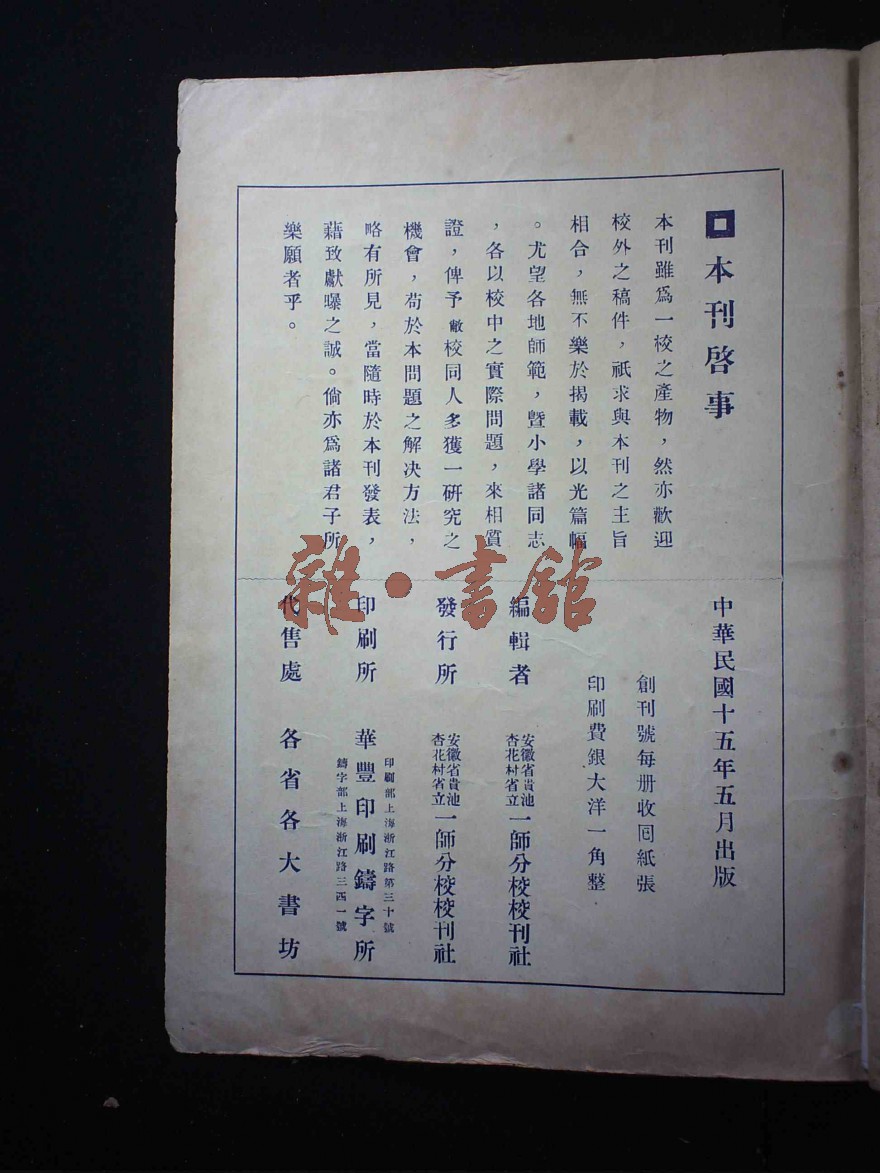 本刊啓事
本刊雖爲一校之產物，然亦歡迎
校外之稿件，祇求與本刊之主旨
相合，無不樂於揭載，以光篇幅
。尤望各地師範，曁小學諸同志
，各以校中之實際問題，來相質
證，俾予敝校同人多獲一研究之
機會，苟於本問題之解决方法，
略有所見，當隨時於本刊發表，
藉致獻曝之誠。倘亦爲諸君子所
樂願者乎。
中華民國十五年五月出版
創刊號每册收囘紙張
印刷費銀大洋一角整
編輯者 安徽省貴池杏花村省立一師分校校刊社
發行所 安徽省貴池杏花村省立一師分校校刊社
印刷所 華豐印刷鑄字所
印刷部上海浙江路第三十號
鑄字部上海浙江路三四一號
代售處 各省各大書坊
雜·書館